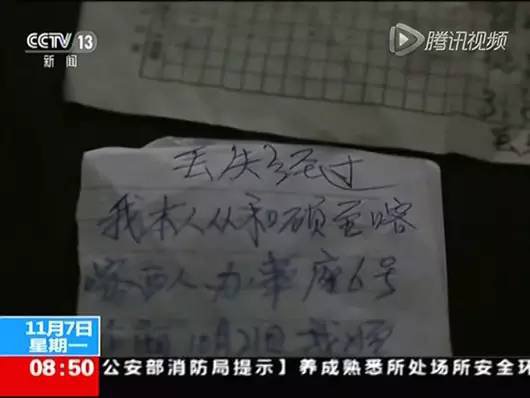 CCTV 13
新闻
腾讯视频
丢失经过
我本人从和硕至喀
办事 座6号
11月7日
星期一
08:50
公安部消防局提示】养成熟悉所处场所安全环